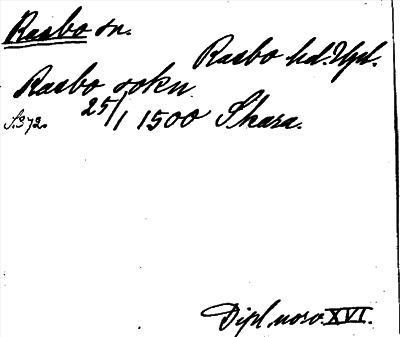 Rasbo sn.
Rasbo hd. Upl.
Rasbo sokn
S. 372. 25/1 1500 Skara.
Dipl norv. XVI.